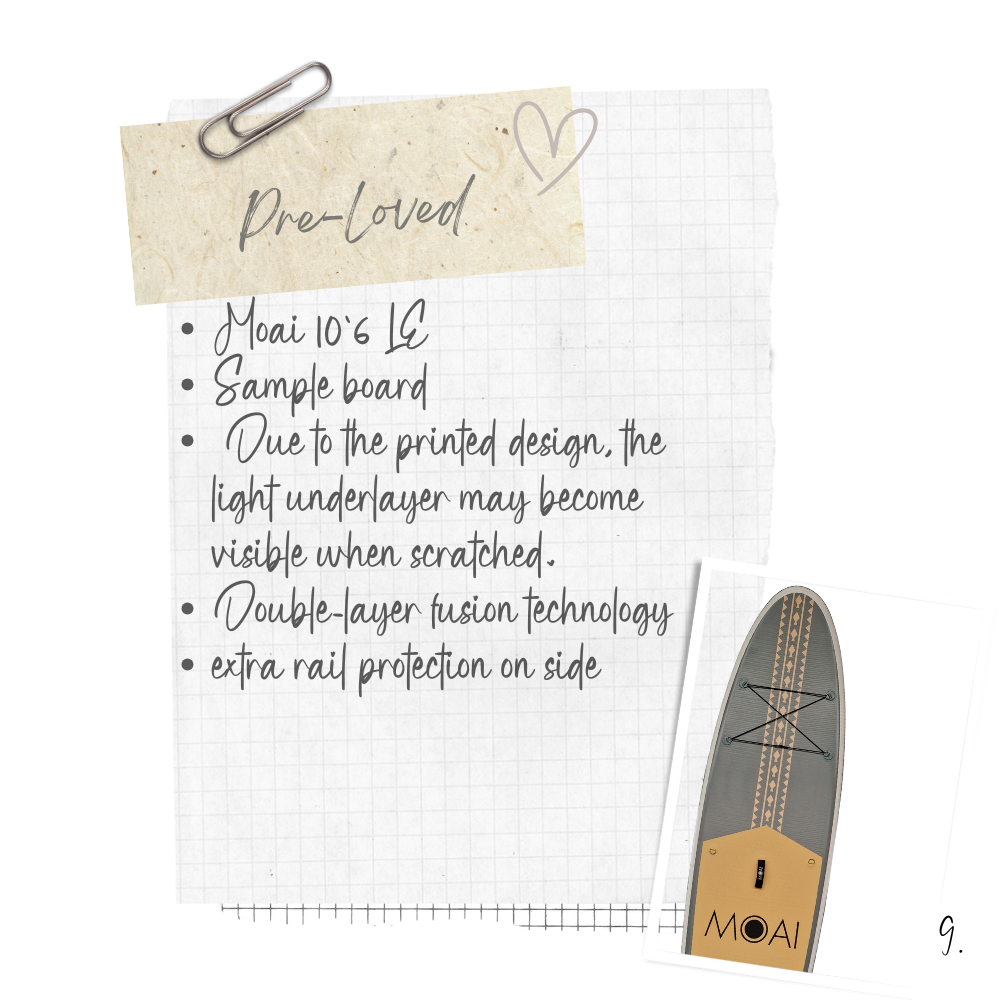 Pre-Loved
• Moai 10`6 LE
• Sample board
• Due to the printed design, the
light underlayer may become
visible when scratched.
• Double-layer fusion technology
• extra rail protection on side
MOAI
9.